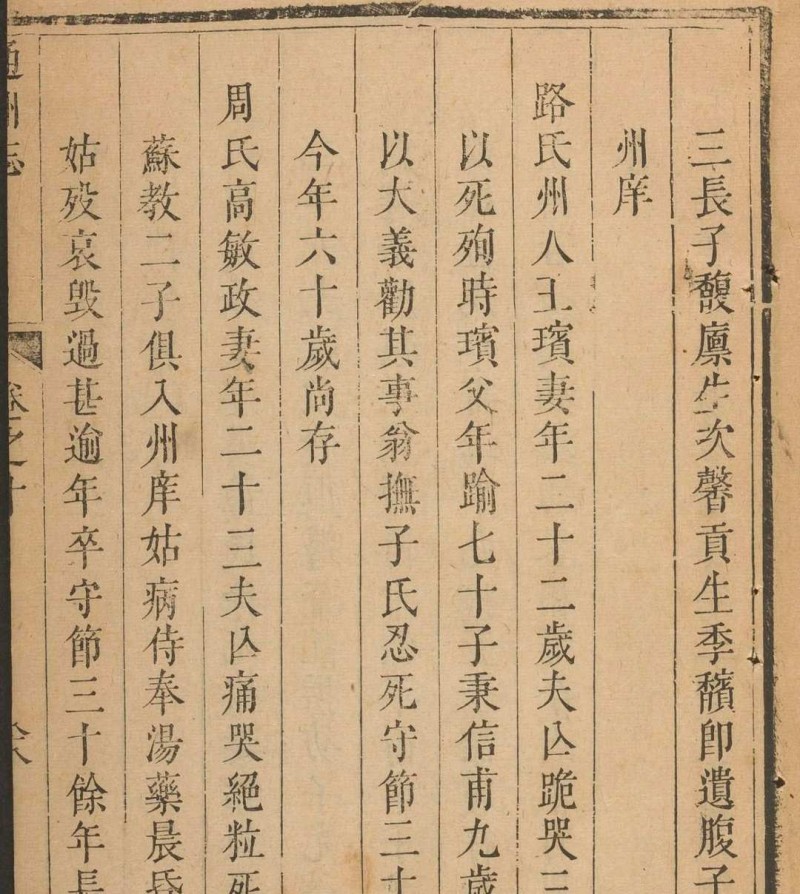 三長子馥廩生次馨貢生季馪卽遺腹子
州庠
路氏州人王璸妻年二十二歲夫亾跪哭三
以死殉時璸父年踰七十子秉信甫九歲
以大義勸其事翁撫子氏忍死守節三十
今年六十歲尚存
周氏高敏政妻年二十三夫亾痛哭絕粒死
蘇教二子俱入州庠姑病侍奉湯藥晨昏
姑殁哀毁過甚逾年卒守節三十餘年長
通州志
卷之十